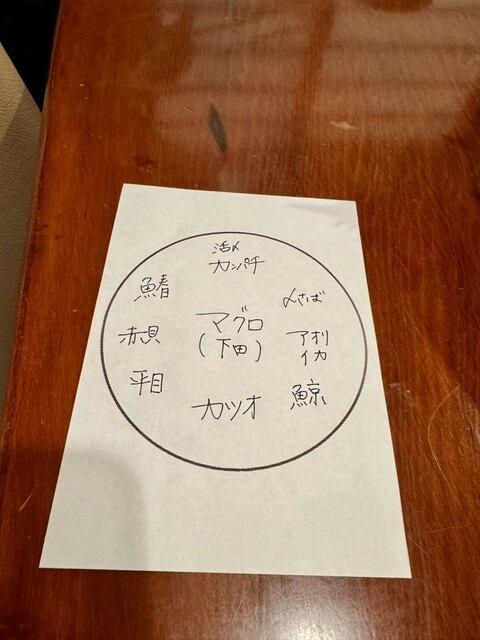 活〆
カンパチ
鰆
〆さば
マグロ
(下田)
赤貝
アオリ
イカ
平目
カツオ
鯨